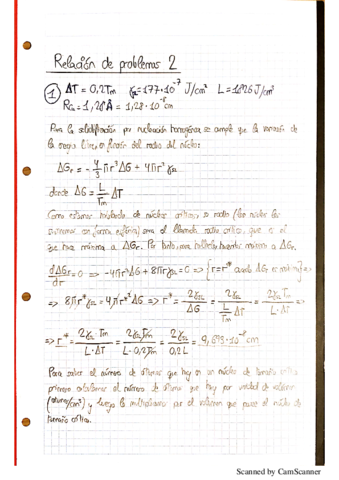 Relación de problemas 2
① ΔT = 0,2Tm γsl = 177·10⁻⁷ J/cm² L = 1826 J/cm³
RCu = 1,28 Å = 1,28·10⁻⁸ cm
Para la solidificación por nucleación homogénea se cumple que la variación de
la energía libre en función del radio del núcleo:
ΔGr = -4/3 πr³ΔG + 4πr²γsl
donde ΔG = L/Tm ΔT
Como estamos hablando de núcleos críticos, su radio (los núcleos los
en forma esférica) será el llamado radio crítico, que es el
que hace máxima a ΔGr. Por tanto, para hallarlo máximo a ΔGr
dΔGr/dr = 0 => -4πr²ΔG + 8πrγsl = 0 => {r = r* cuando ΔGr es máxima} =>
=> 8πr*γsl = 4πr*²ΔG => r* = 2γsl/ΔG = 2γsl/(L/Tm ΔT) = 2γslTm/(L·ΔT) =>
=> r* = 2γsl·Tm/(L·ΔT) = 2γslTm/(L·0,2Tm) = 2γsl/(0,2L) = 9,693·10⁻⁸ cm
Para saber el número de átomos que hay en un núcleo de tamaño crítico
primero calculamos el número de átomos que hay por unidad de volumen
(átomos/cm³) y luego lo multiplicamos por el volumen que posee el núcleo de
tamaño crítico.
Scanned by CamScanner